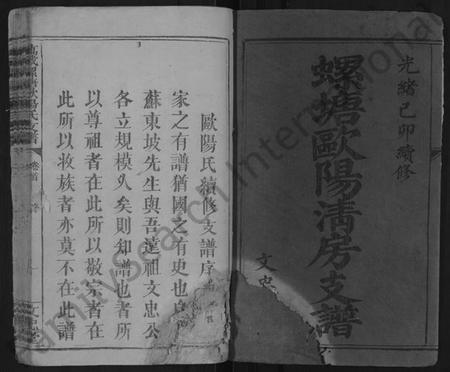 光緒己卯續修
螺塘歐陽清房支譜
文忠
歐陽氏續修支譜序
家之有譜猶國之有史也
蘇東坡先生與吾遠祖文忠公
各立規模久矣則知譜也者所
以尊祖者在此所以敬宗者在
此所以收族者亦莫不在此譜
卷首
FamilySearch International